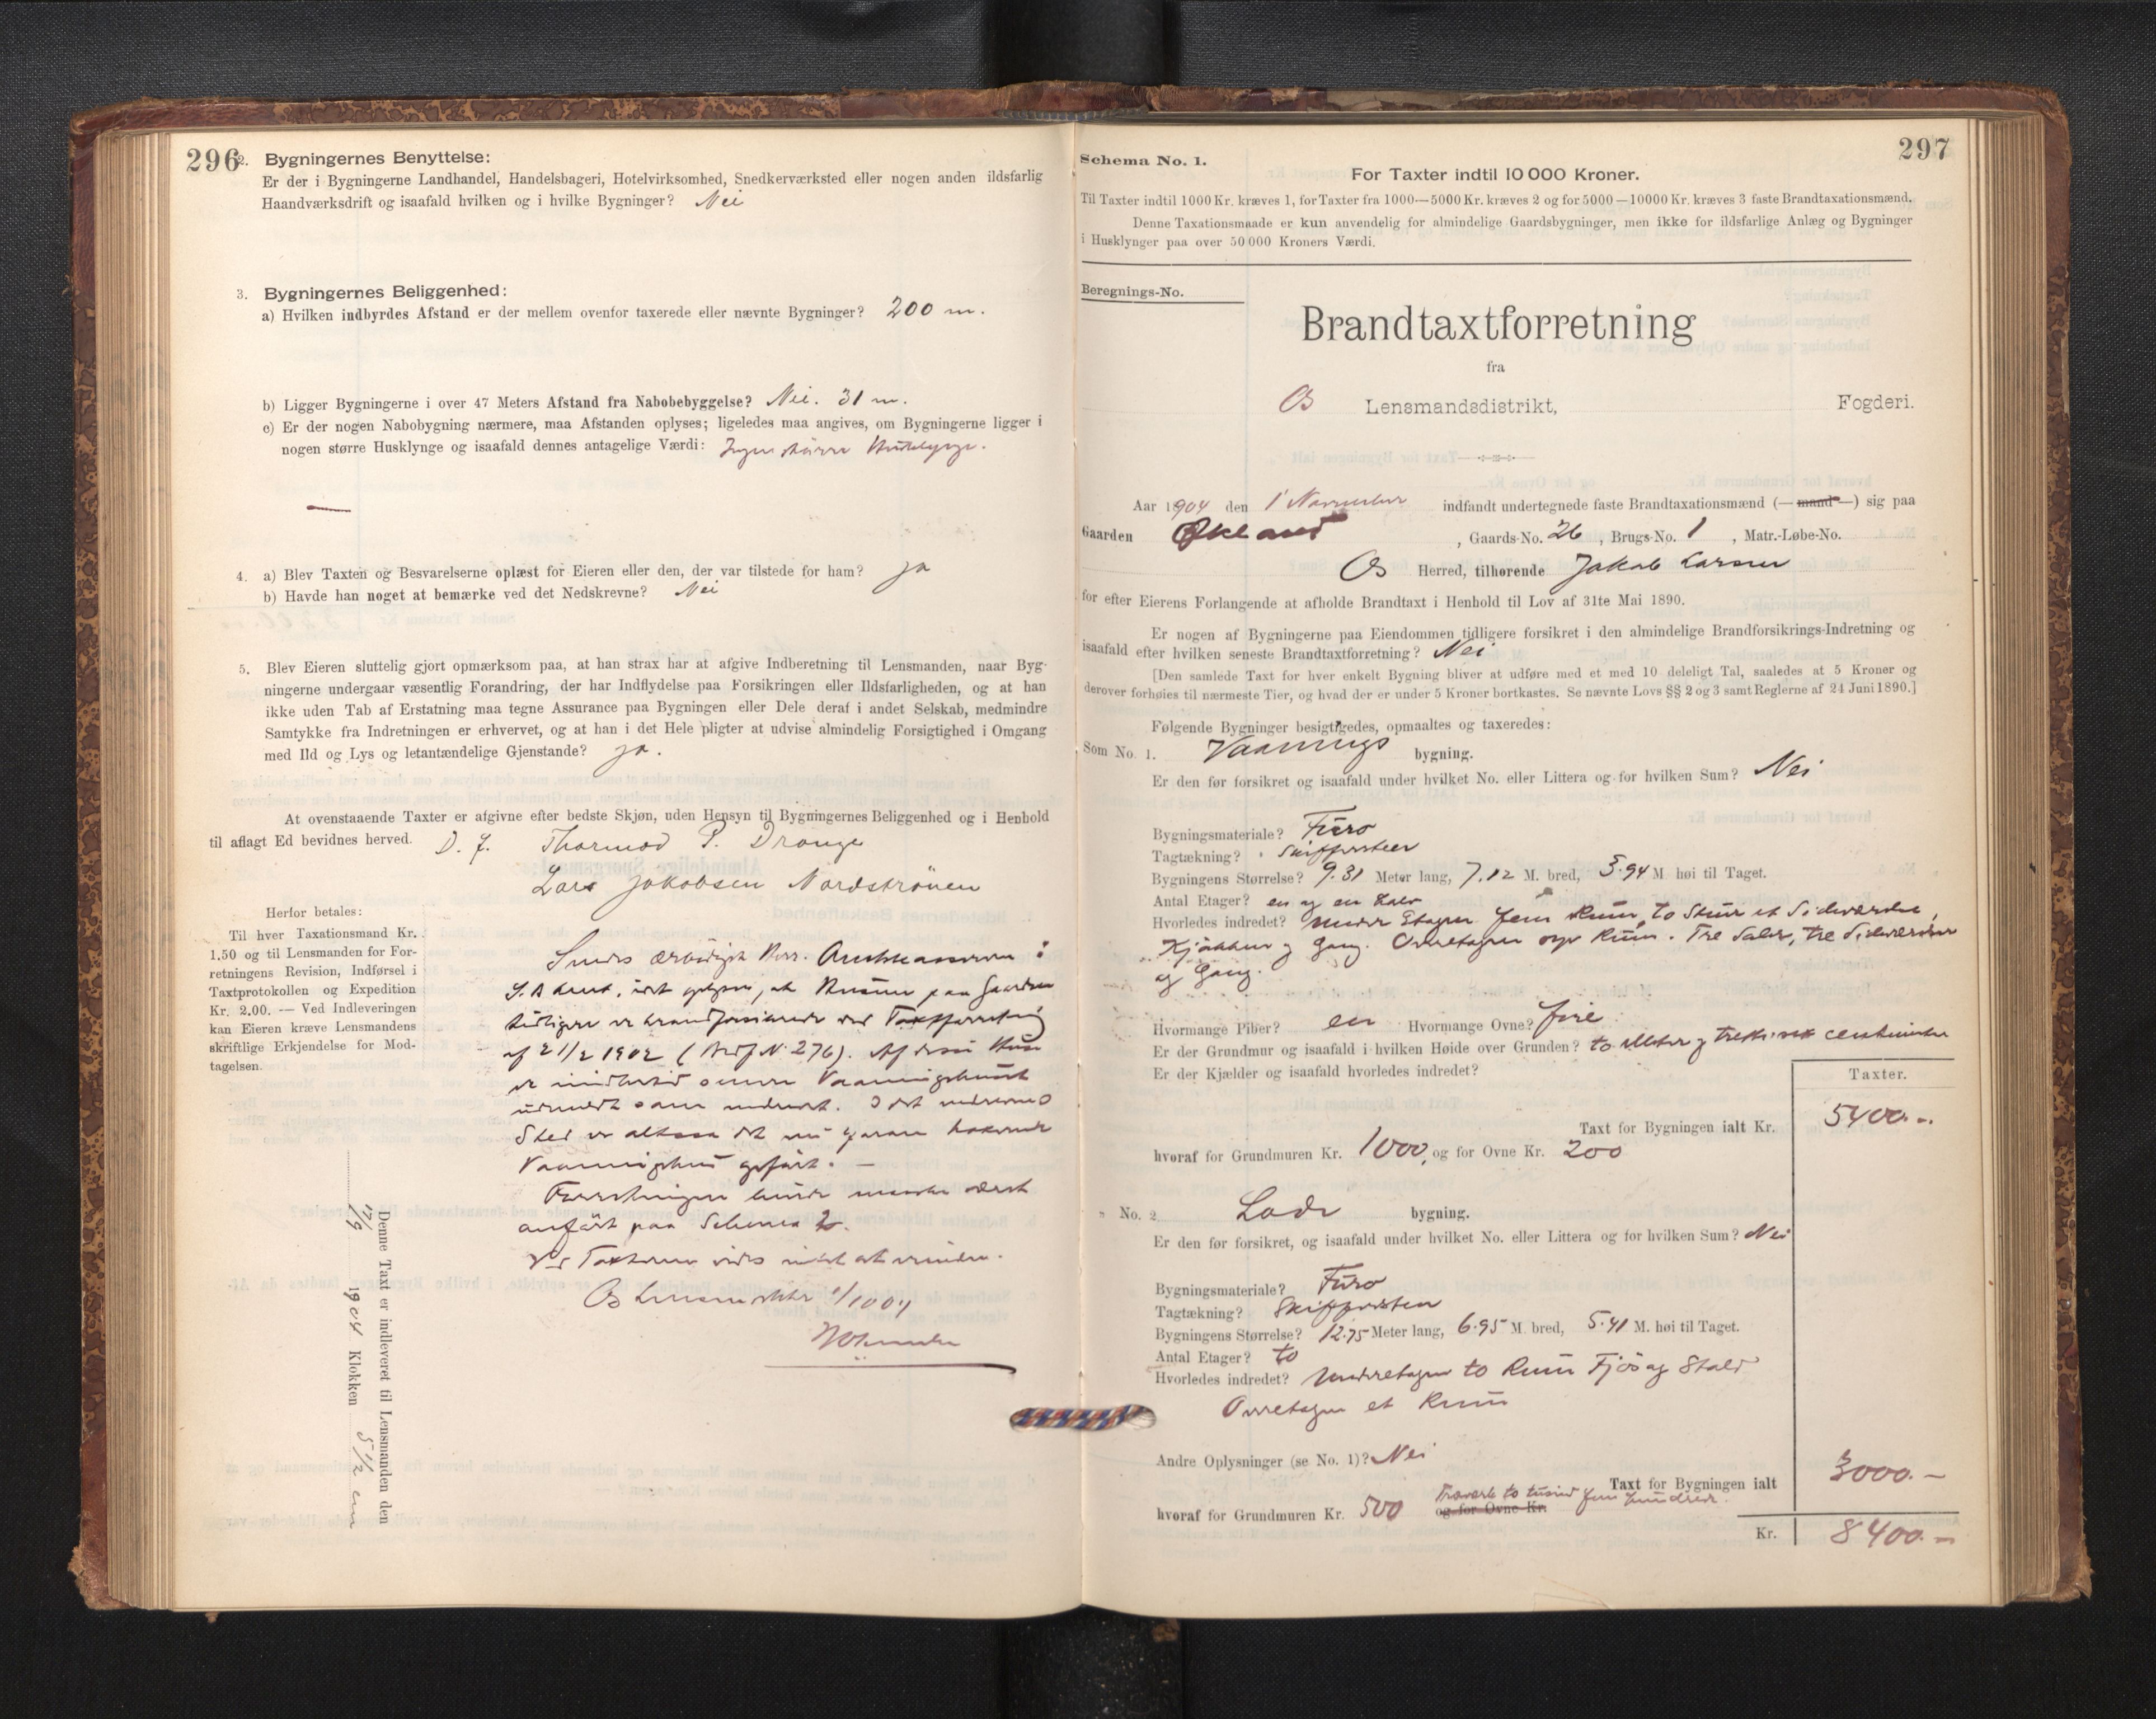 296
2. Bygningernes Benyttelse:
Er der i Bygningerne Landhandel, Handelsbageri, Hotelvirksomhed, Snedkerværksted eller nogen anden ildsfarlig
Haandværksdrift og isaafald hvilken og i hvilke Bygninger? Nei
3. Bygningernes Beliggenhed:
a) Hvilken indbyrdes Afstand er der mellem ovenfor taxerede eller nævnte Bygninger? 200 m.
b) Ligger Bygningerne i over 47 Meters Afstand fra Nabobebyggelse? Nei. 31 m.
c) Er der nogen Nabobygning nærmere, maa Afstanden oplyses; ligeledes maa angives, om Bygningerne ligger i
nogen større Husklynge og isaafald dennes antagelige Værdi: Ingen større Husklynge.
4. a) Blev Taxten og Besvarelserne oplæst for Eieren eller den, der var tilstede for ham? ja
b) Havde han noget at bemærke ved det Nedskrevne? Nei
5. Blev Eieren sluttelig gjort opmærksom paa, at han strax har at afgive Indberetning til Lensmanden, naar Byg-
ningerne undergaar væsentlig Forandring, der har Indflydelse paa Forsikringen eller Ildsfarligheden, og at han
ikke uden Tab af Erstatning maa tegne Assurance paa Bygningen eller Dele deraf i andet Selskab, medmindre
Samtykke fra Indretningen er erhvervet, og at han i det Hele pligter at udvise almindelig Forsigtighed i Omgang
med Ild og Lys og letantændelige Gjenstande? ja.
At ovenstaaende Taxter er afgivne efter bedste Skjøn, uden Hensyn til Bygningernes Beliggenhed og i Henhold
til aflagt Ed bevidnes herved. D. f.
Thormod P. Drange
Lars Jakobsen Nordstrønen
Herfor betales:
Til hver Taxationsmand Kr.
1,50 og til Lensmanden for For-
retningens Revision, Indførsel i
Taxtprotokollen og Expedition
Kr. 2.00. — Ved Indleveringen
kan Eieren kræve Lensmandens
skriftlige Erkjendelse for Mod-
tagelsen.
Denne Taxt er indleveret til Lensmanden den
17/9 1904 Klokken 5 1/2 em
Sendes ærbødigst Herr
paa Gaarden
tidligere er brandforsikrede ved Taxtforretning
af 21/2 1902 (N. 276). Af disse Huse
er imidlertid senere Vaaningshuset
som
Sted er altsaa det nu
Vaaningshus opført. —
Forretningen burde
anført paa Schema 2.
Ved Taxterne vides intet at erindre.
Os 1/10 04
297
Schema No. 1.
For Taxter indtil 10 000 Kroner.
Til Taxter indtil 1000 Kr. kræves 1, for Taxter fra 1000—5000 Kr. kræves 2 og for 5000—10000 Kr. kræves 3 faste Brandtaxationsmænd.
Denne Taxationsmaade er kun anvendelig for almindelige Gaardsbygninger, men ikke for ildsfarlige Anlæg og Bygninger
i Husklynger paa over 50 000 Kroners Værdi.
Beregnings-No.
Brandtaxtforretning
fra
Os Lensmandsdistrikt, Fogderi.
Aar 1904 den 1 November indfandt undertegnede faste Brandtaxationsmænd (— mand —) sig paa
Gaarden Økland, Gaards-No. 26, Brugs-No. 1, Matr.-Løbe-No.
Os Herred, tilhørende Jakob Larsen
for efter Eierens Forlangende at afholde Brandtaxt i Henhold til Lov af 31te Mai 1890.
Er nogen af Bygningerne paa Eiendommen tidligere forsikret i den almindelige Brandforsikrings-Indretning og
isaafald efter hvilken seneste Brandtaxtforretning? Nei
[Den samlede Taxt for hver enkelt Bygning bliver at udføre med et med 10 deleligt Tal, saaledes at 5 Kroner og
derover forhøies til nærmeste Tier, og hvad der er under 5 Kroner bortkastes. Se nævnte Lovs §§ 2 og 3 samt Reglerne af 24 Juni 1890.]
Følgende Bygninger besigtigedes, opmaaltes og taxeredes:
Som No. 1. Vaanings bygning.
Er den før forsikret og isaafald under hvilket No. eller Littera og for hvilken Sum? Nei
Bygningsmateriale? Furo
Tagtækning? Skiffersteen
Bygningens Størrelse? 9.31 Meter lang, 7.12 M. bred, 5.94 M. høi til Taget.
Antal Etager? en og en halv
Hvorledes indredet? Under Etagen fem Rum, to Stuer et Sideværelse,
Kjøkken og Gang. Overetagen syv Rum. Tre Saler, tre Sideværelser
og Gang.
Hvormange Piber? en Hvormange Ovne? fire
Er der Grundmur og isaafald i hvilken Høide over Grunden? to Meter og centimeter
Er der Kjælder og isaafald hvorledes indredet?
Taxter.
Taxt for Bygningen ialt Kr. 5400.-
hvoraf for Grundmuren Kr. 1000, og for Ovne Kr. 200
" No. 2 Lade bygning.
Er den før forsikret, og isaafald under hvilket No. eller Littera og for hvilken Sum? Nei
Bygningsmateriale? Furo
Tagtækning? Skiffersten
Bygningens Størrelse? 12.75 Meter lang, 6.95 M. bred, 5.41 M. høi til Taget.
Antal Etager? to
Hvorledes indredet? Underetagen to Rum Fjøs og Stald
Overetagen et Rum
Andre Oplysninger (se No. 1)? Nei
Taxt for Bygningen ialt 3000.-
Træværk to tusind fem hundrede.
hvoraf for Grundmuren Kr. 500 og for Ovne Kr.
Kr. 8400.-